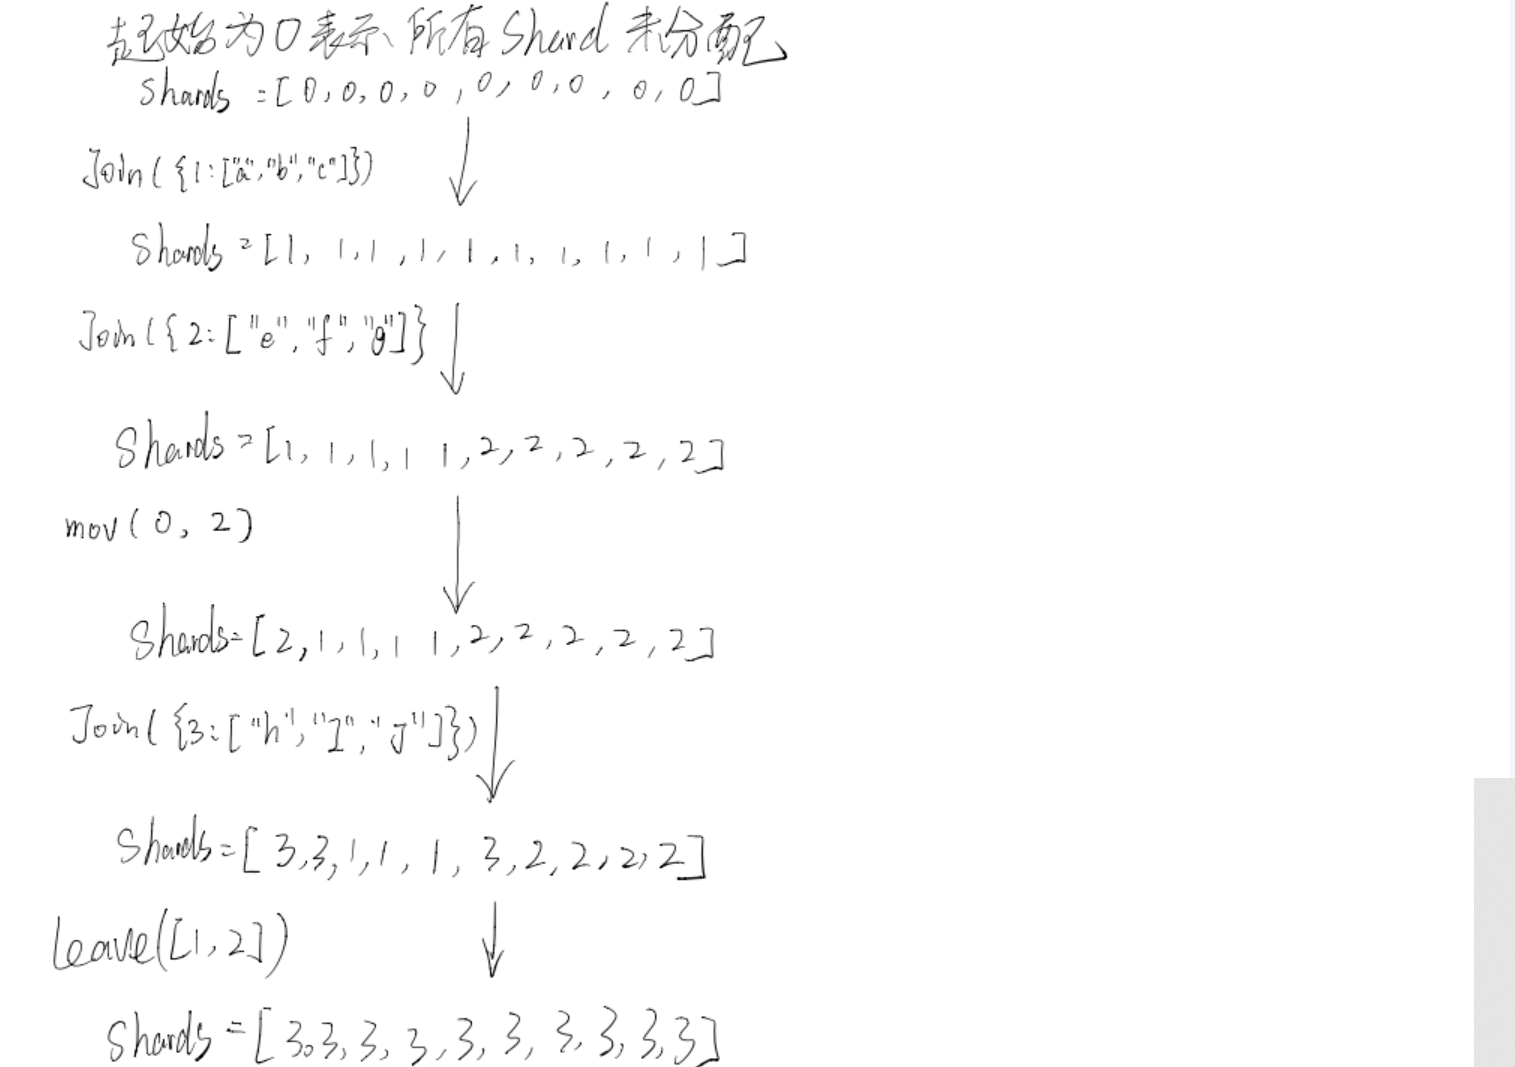 起始为0表示、所有Shard未分配
Shards = [0,0,0,0,0,0,0,0,0]
Join({1:["a","b","c"]})
Shards = [1, 1,1,1,1,1,1,1,1,1,1]
Join({2:["e","f","g"]}
Shards = [1,1,1,1 1,2,2,2,2,2]
mov(0,2)
Shards=[2,1,1,1 1,2,2,2,2,2]
Join({3:["h","I","J"]})
Shards=[3,3,1,1,1,3,2,2,2,2]
leave([1,2])
Shards=[3,3,3,3,3,3,3,3,3,3]